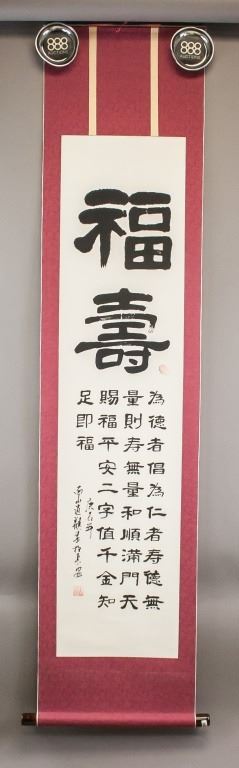 888
AUCTIONS
888
AUCTIONS
福
壽
為德者倡為仁者寿德無
量則寿無量和順滿門天
賜福平安二字值千金知
足即福